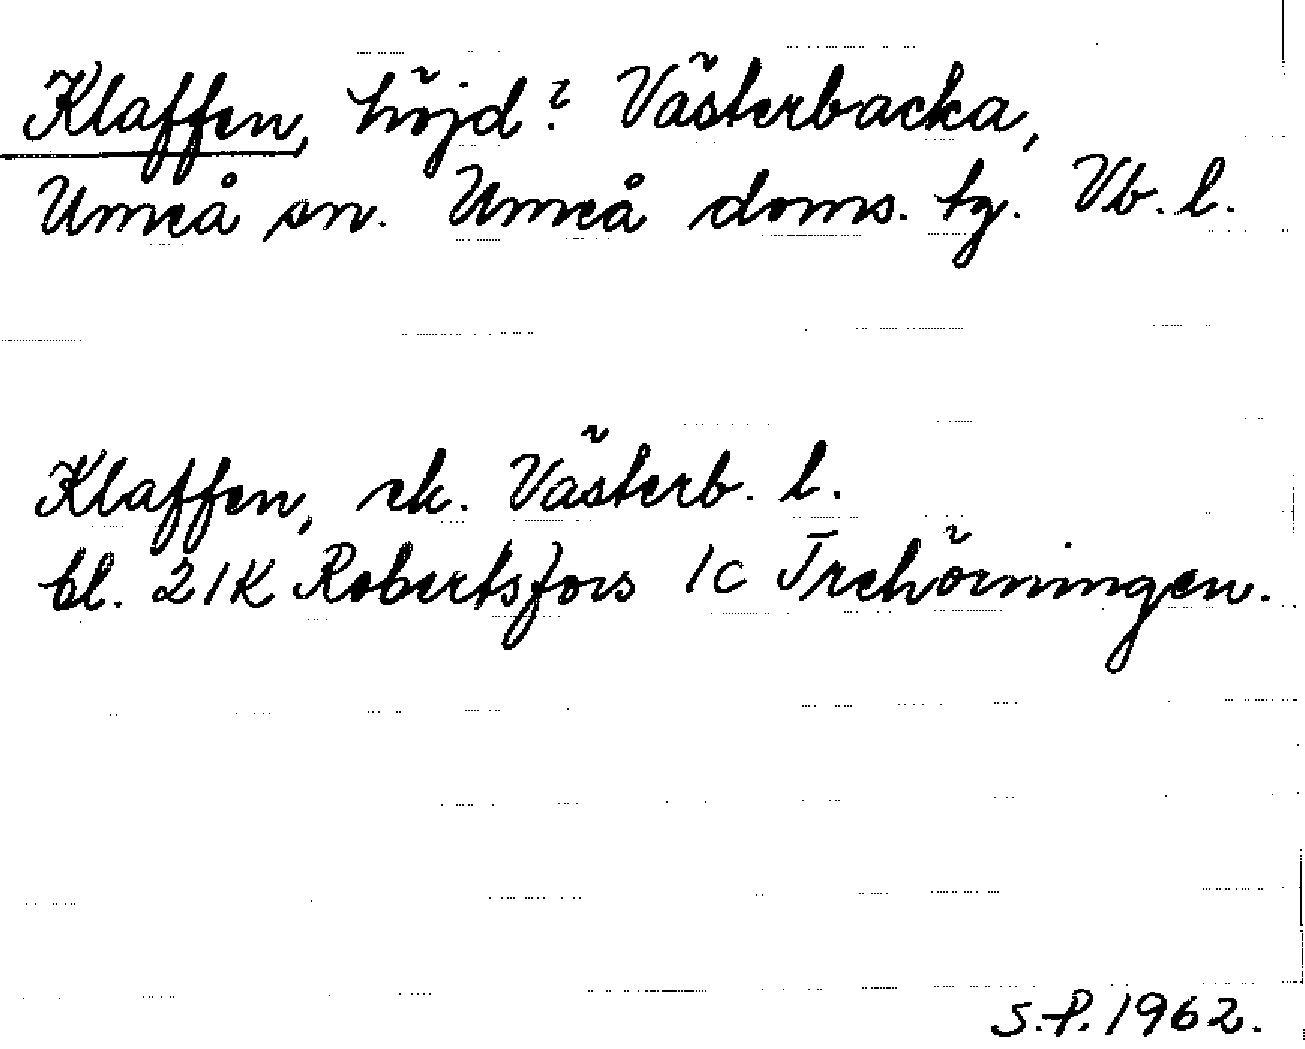 Klaffen, höjd? Västerbacka,
Umeå sn. Umeå doms. tg. Vb. l.
Klaffen, ek. Västerb. l.
bl. 21K Robertsfors 1c Trehörningen.
S.P. 1962.